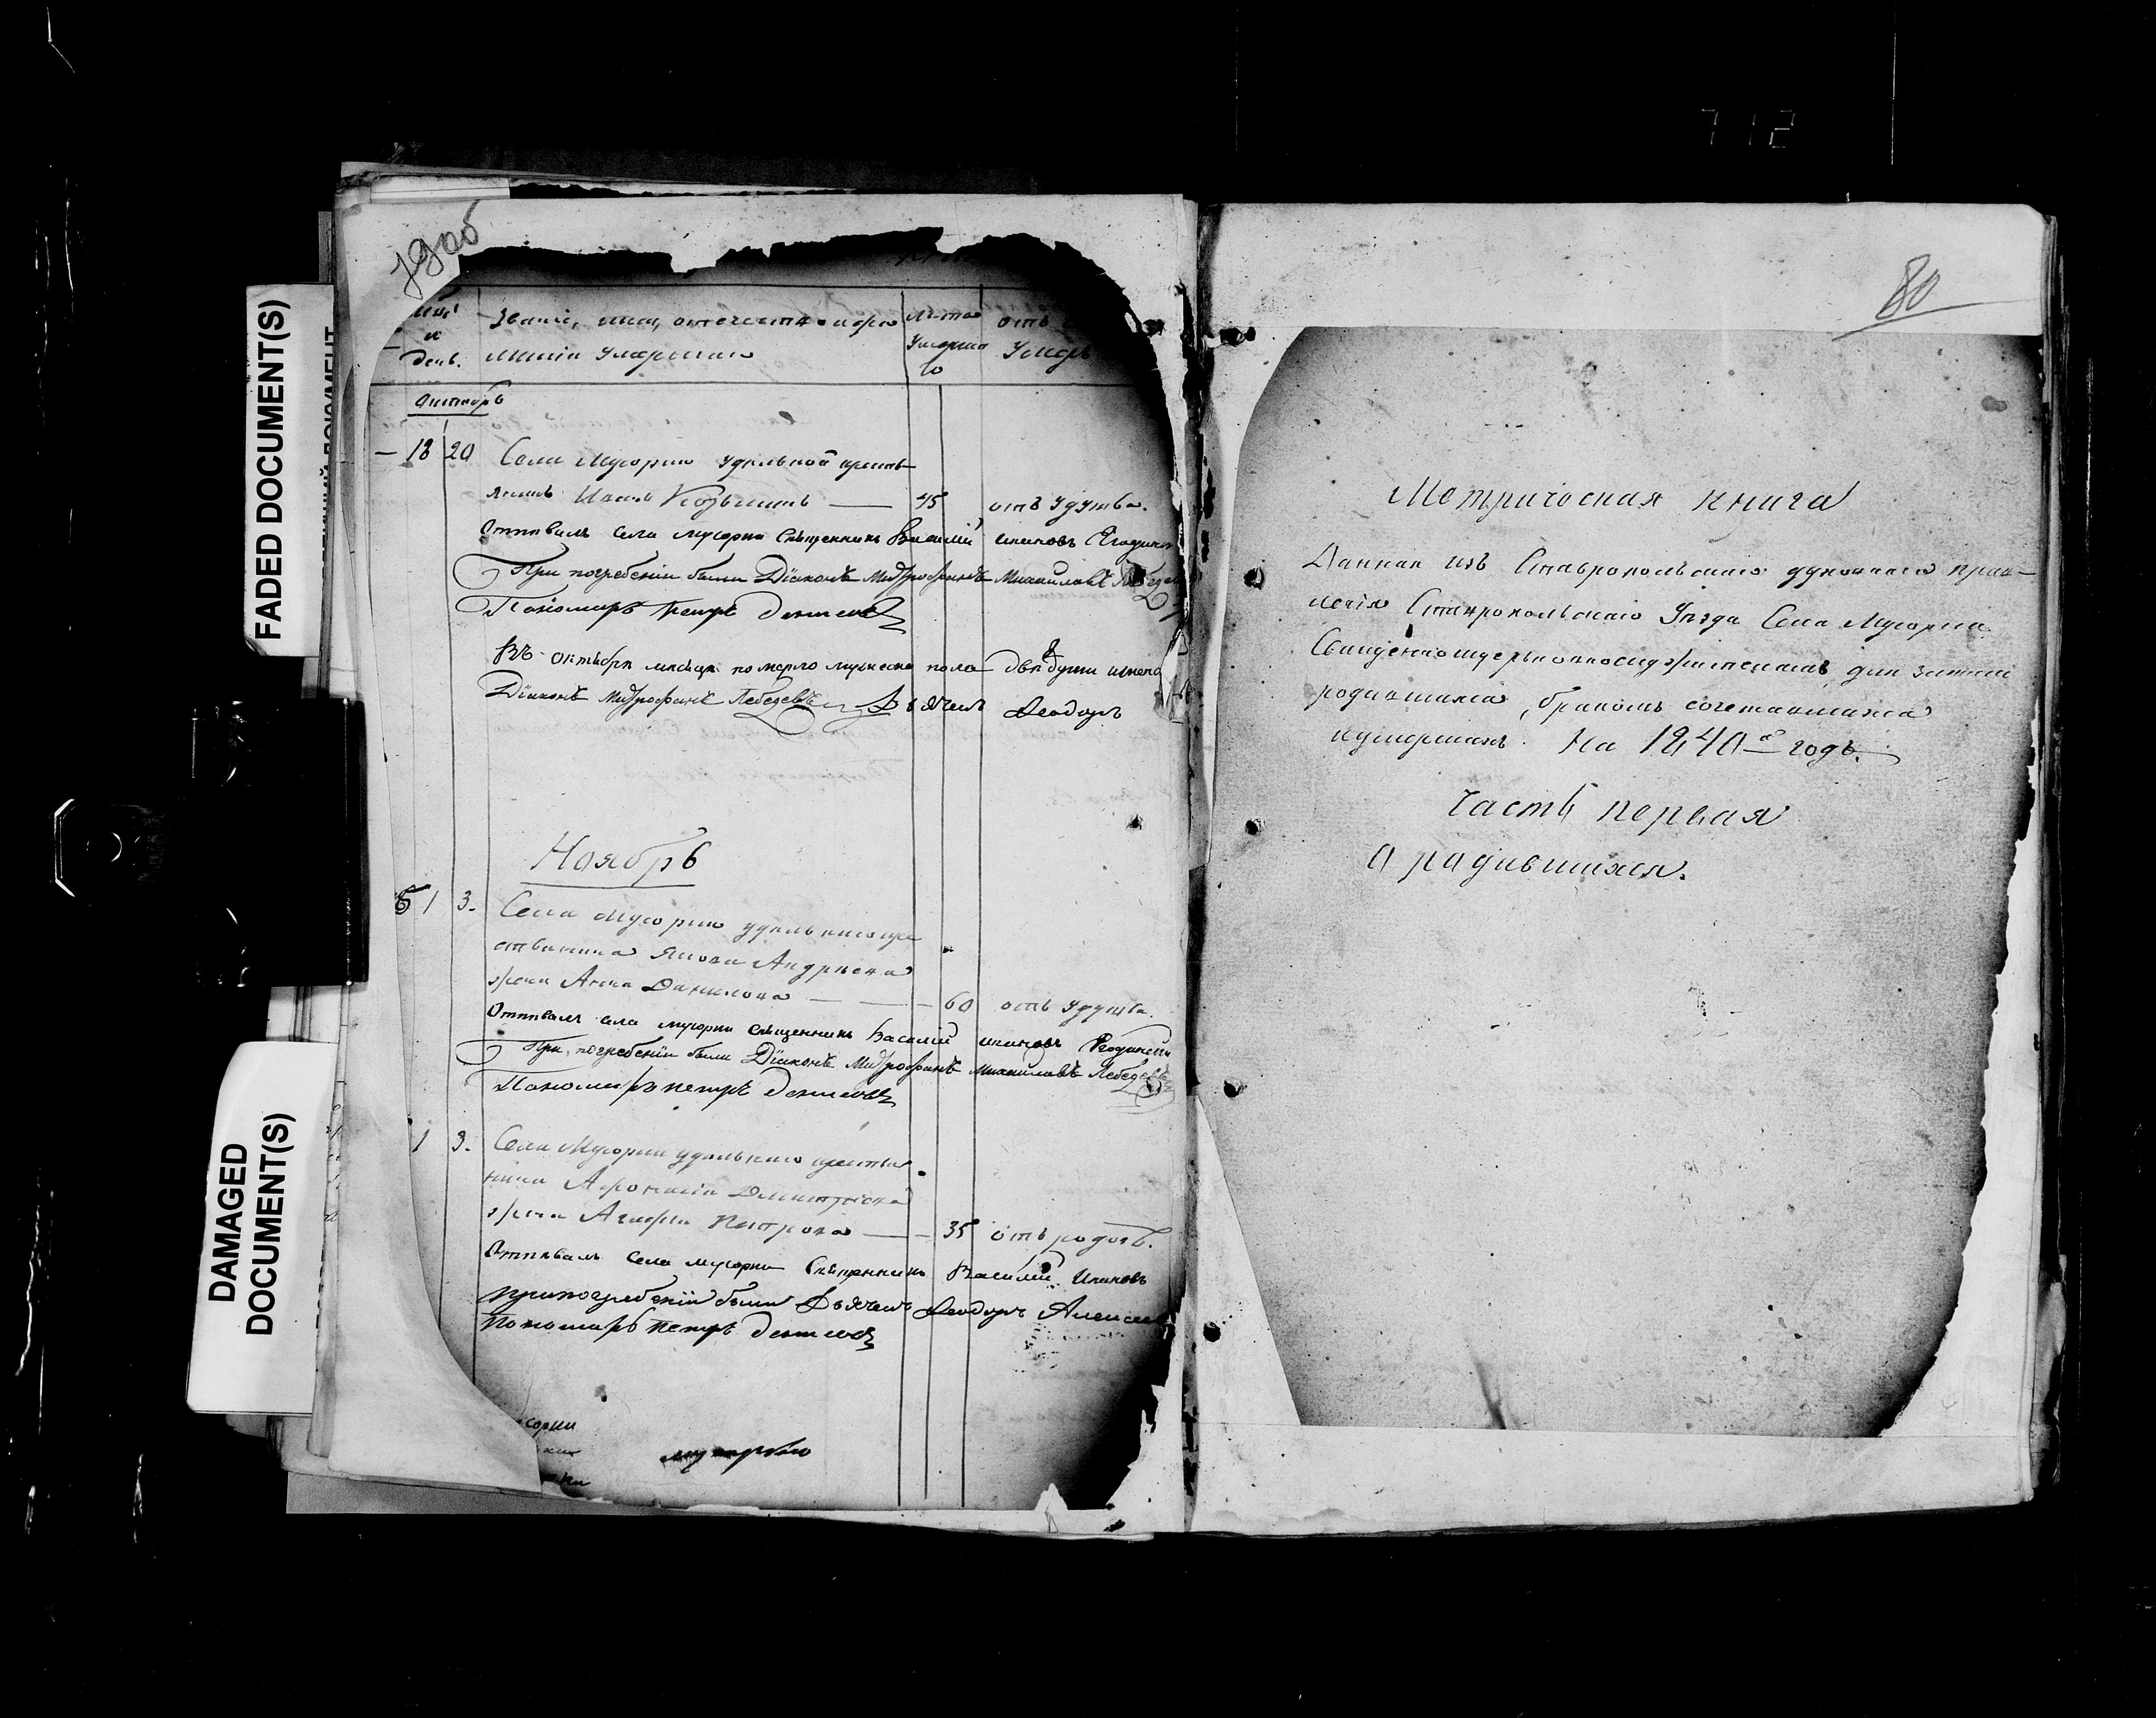 712
79об
день.
Званіе, имя, отечество
Лета
Умерша
го
отъ
Октябрь
18 20 Села Мусорки удельной кресть-
янинъ Иванъ Козьминъ — 45 отъ удушья.
Отпевалъ села мусорки Священникъ Василій
При погребеніи были Діаконъ Митрофанъ Михайловъ Лебедевъ
Пономарь петръ денисовъ
Въ октябре месяце померло мужеска пола две души
Діаконъ Митрофанъ Лебедевъ Дьячекъ Феодоръ
Ноябрь
1 3. Села Мусорки удельнаго кре
стьянина Якова Андреева
жена Анна Данилова — 60 отъ удушья.
Отпевалъ села мусорки Священникъ Василій
При погребеніи были Діаконъ Митрофанъ Михайловъ Лебедевъ
Пономарь петръ денисовъ
1 3. Села Мусорки удельнаго крестья
нина Афонасія Дмитріева
жена Агафья Петрова — 35 отъ родовъ.
Отпевалъ села мусорки Священникъ Василій
При погребеніи были Дьячекъ Феодоръ Алексеевъ
Пономарь петръ денисовъ
80
Метрическая книга
Данная изъ Ставропольскаго духовнаго прав-
ленія Ставропольскаго Уезда Села Мусорки
Священноцерковнослужителямъ для записи
родившихся, бракомъ сочетавшихся
иумершихъ. На 1840й годъ.
Часть первая
О родившихся.
FADED DOCUMENT(S)
DAMAGED
DOCUMENT(S)